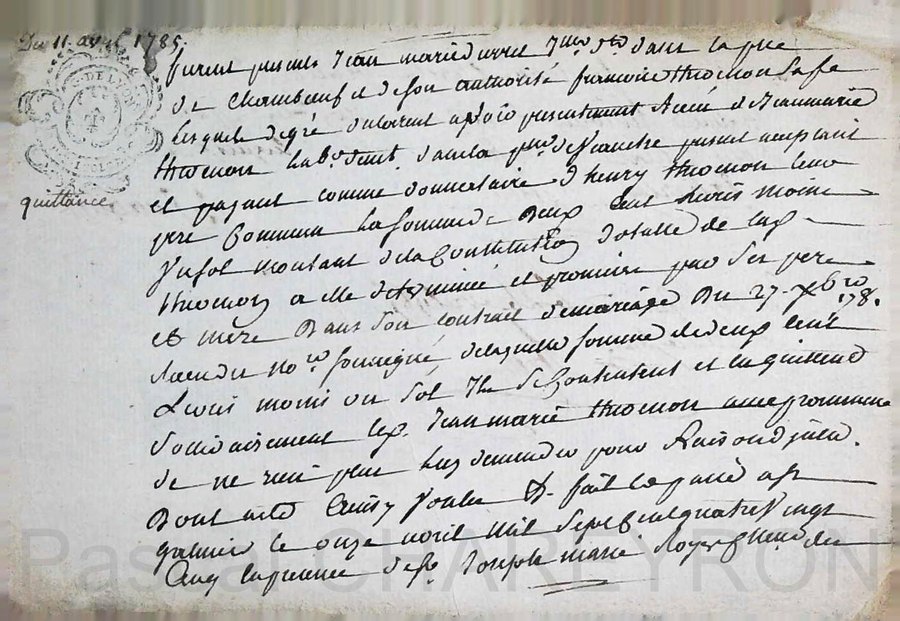 Du 11 avril 1785
quittance
furent presents Jean marie dans la psse
de Chambeuf et de son authorité françoise thromon sa fe
Lesquels de gré declarent avoir presentement Receu de Jeanmarie
thromon Lab. demt. dans la psse. de Veauche present acceptant
et payant comme donnataire d'henry thromon leur
pere Commun La somme de Deux Cent livres moins
Un sol montant de la Constitution dotalle de lad.
thromon a elle determinée et promise par ses pere
et mere Dans son contrat de mariage Du 27. xbre 178.
Receu du nore. soussigné, de laquelle somme de deux Cent
Livres moins un sol Ils se Contentent et en quittent
Jean marie thromon avec promesse
de ne rien plus Luy demander pour Raison d'icelle.
Dont acte Ainsy Voulu &. fait et passé a st
galmier le onze avril mil sept Cent quatre Vingt
Cinq En presence de sr. Joseph marie Royer
Pascal CHAREYRON